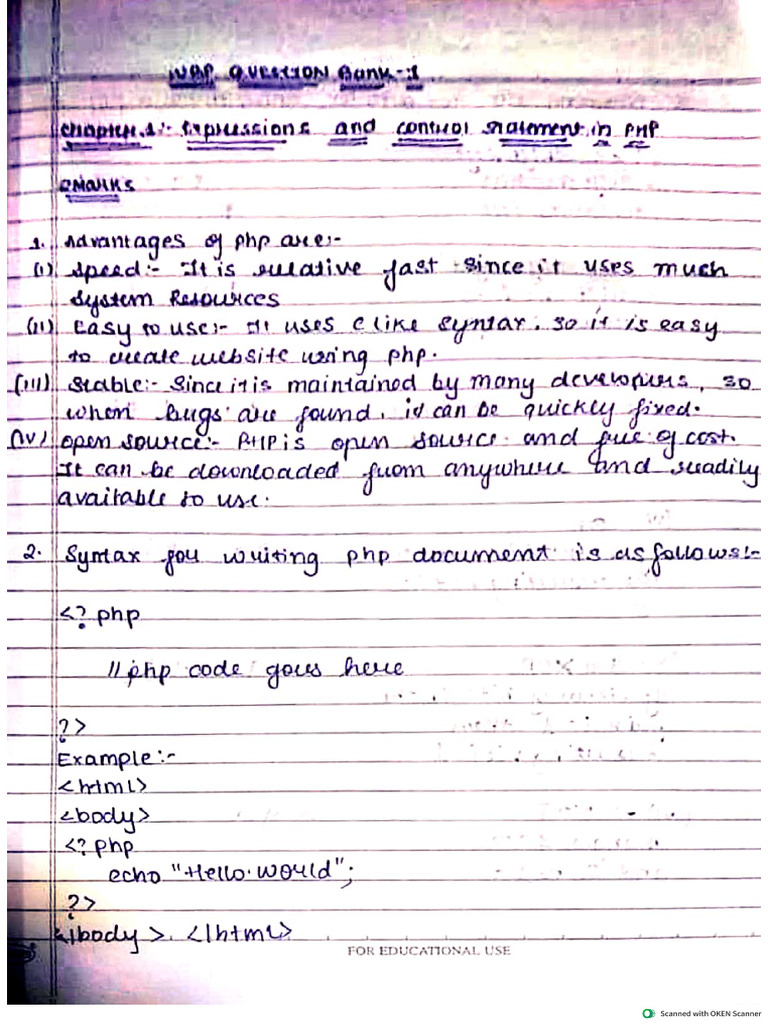 WBP QUESTION Bank-1
Chapter.1:- Expressions and control statement in PHP
2MARKS
1. Advantages of php are:-
(i) Speed:- It is relative fast since it uses much
System Resources
(ii) Easy to use:- It uses C like syntax, so it is easy
to create website using php.
(iii) Stable:- Since it is maintained by many developers, so
when bugs are found, it can be quickly fixed.
(iv) open source:- PHP is open source and free of cost.
It can be downloaded from anywhere and readily
available to use.
2. Syntax for writing php document is as follows:-
<?php
//php code goes here
?>
Example:-
<html>
<body>
<?php
echo "Hello.world";
?>
</body>. </html>
FOR EDUCATIONAL USE
Scanned with OKEN Scanner